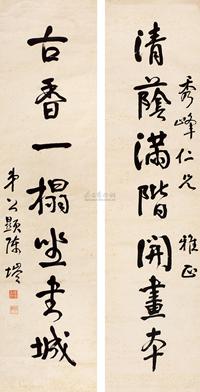 清蔭滿階開畫本
秀峰仁兄 雅正
古香一榻坐書城
弟公顯陳堪